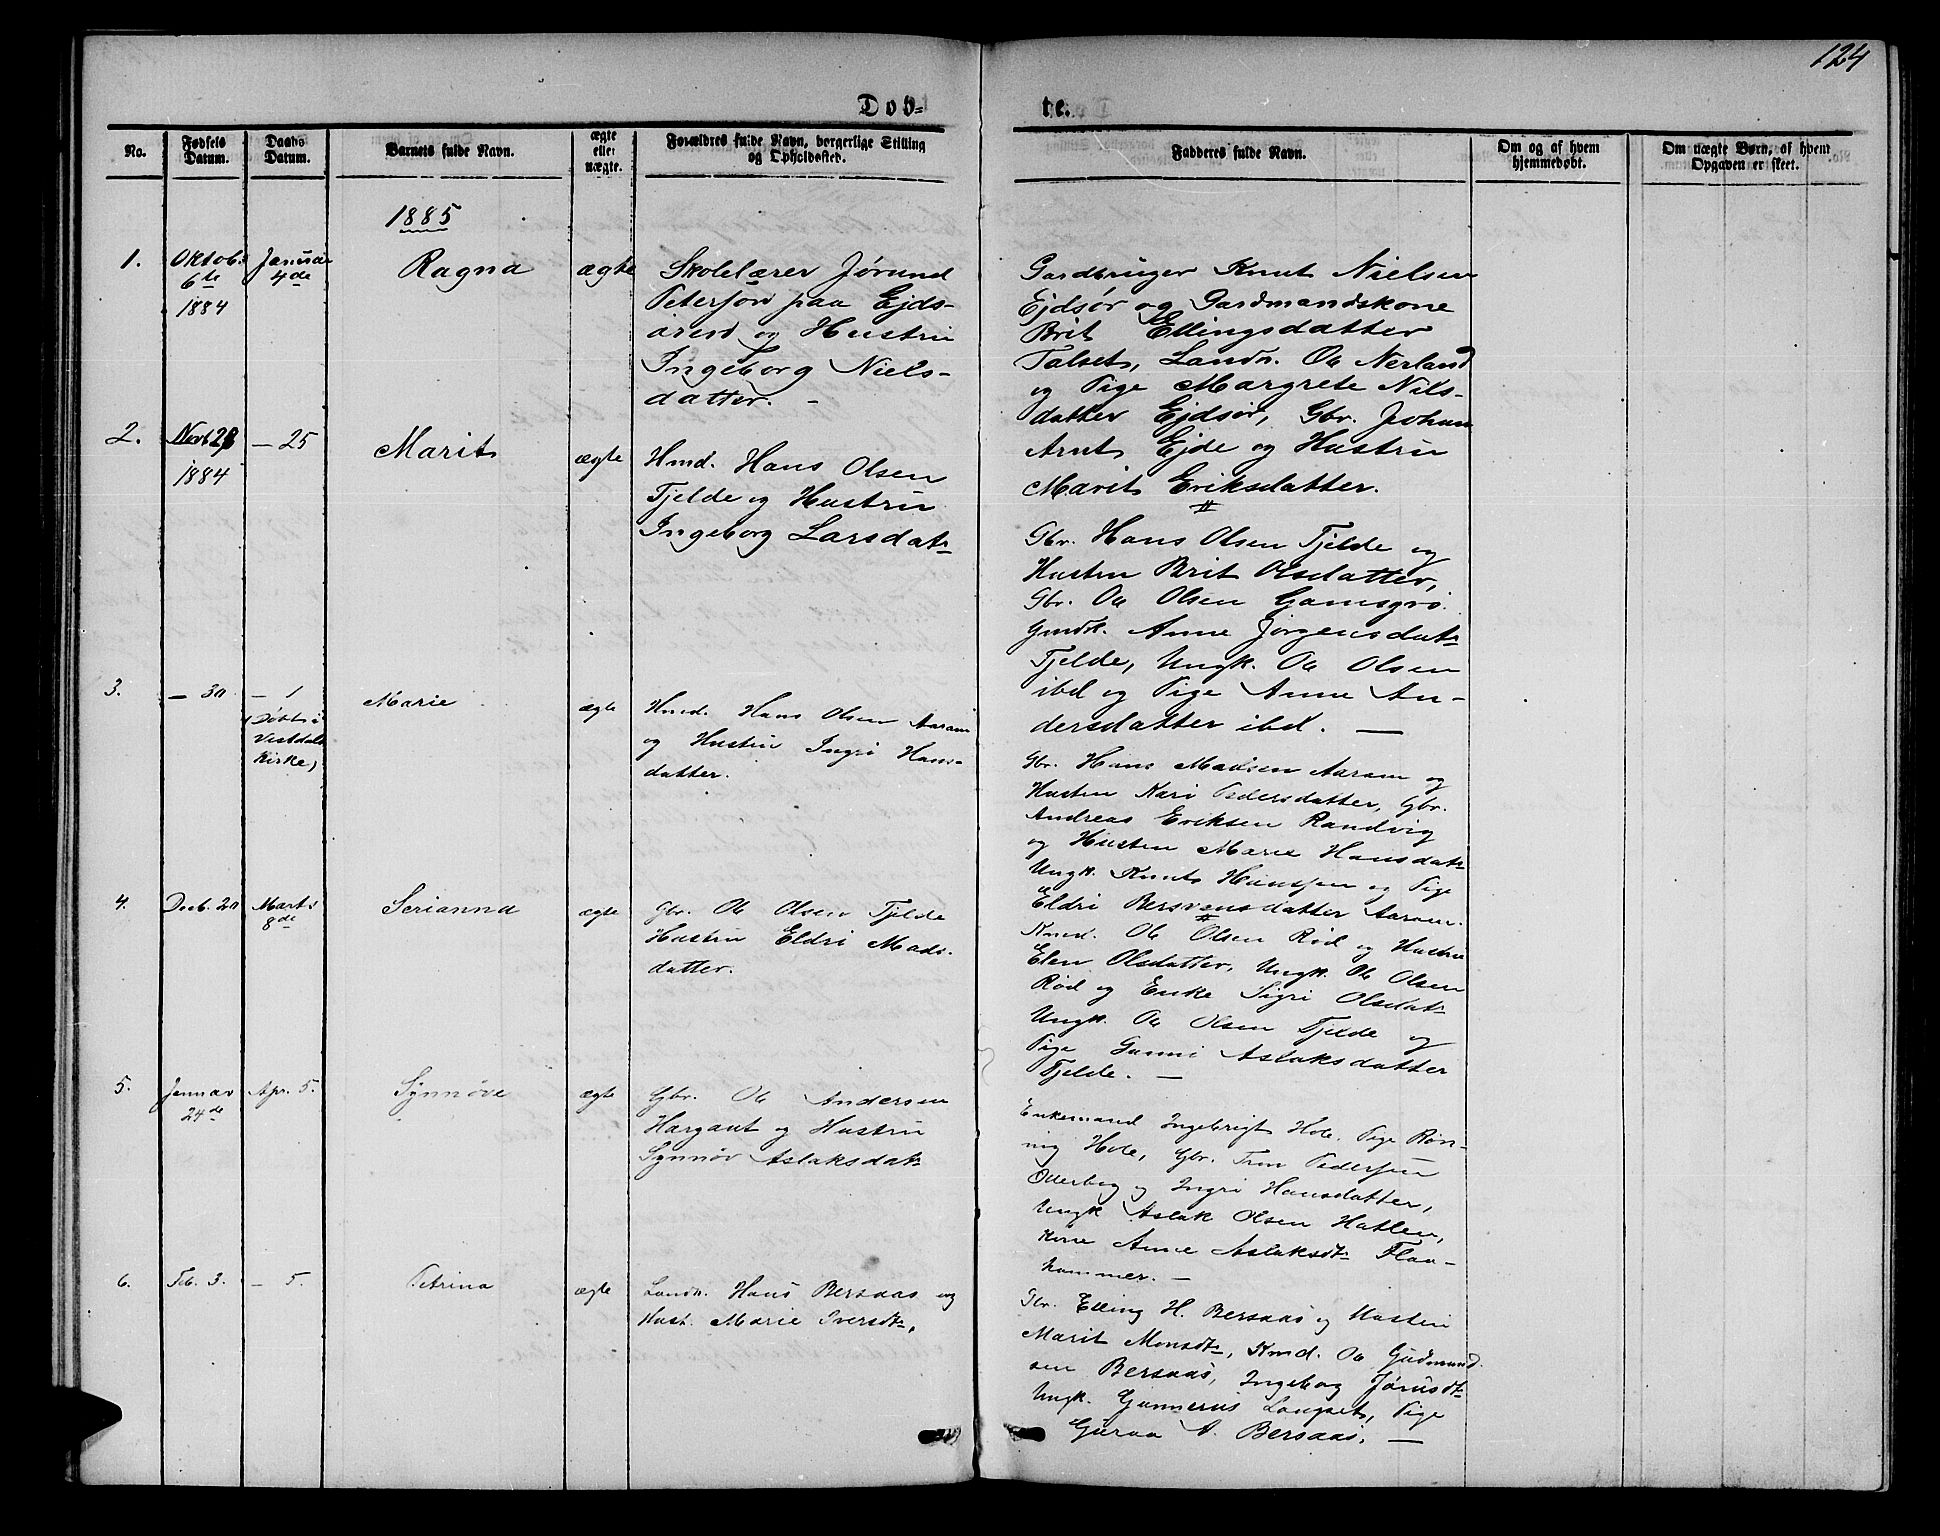 124
Døb-
te.
No.
Fødsels Datum.
Daabs Datum.
Barnets fulde Navn.
ægte eller uægte.
Forældres fulde Navn, borgerlige Stilling
og Opholdssted.
Fadderes fulde Navn.
Om og af hvem
hjemmedøbt.
Om uægte Børn, af hvem
Opgaven er skeet.
1885
1.
Oktob.
6te
1884
Januar
4de
Ragna
ægte
Skolelærer Jørund
Petersøn paa Ejds-
øren og Hustru
Ingeborg Niels-
datter. -
Gardbruger Knut Nielsen
Ejdsør og Gardmandskone
Brit Ellingsdatter
Talset, Landh. Ole Nerland
og Pige Margrete Nils-
datter Ejdsør, Gbr. Johan
Arnt Ejde og Hustru
Marit Eriksdatter.
2.
1884
- 25
Marit
ægte
Hmd. Hans Olsen
Tjelde og Hustru
Ingeborg Larsdat-
Gbr. Hans Olsen Tjelde og
Hustru Brit Olsdatter,
Gbr. Ole Olsen
Gmdk. Anne Jørgensdat-
Tjelde, Ungk. Ole Olsen
ibd og Pige Anne An-
dersdatter ibd. -
3.
- 30
- 1
(Døbt i
Vistdals
Kirke)
Marie
ægte
Hmd. Hans Olsen Aaram
og Hustru Ingri Hans-
datter.
Gbr. Hans Madsen Aaram og
Hustru Kari Pedersdatter, Gbr.
Andreas Eriksen Randvig
og Hustru Marie Hansdat-
Ungk. Knut Hansen og Pige
Eldri Bersvensdatter Aaram.
4.
Decb. 20
Marts
8de
Serianna
ægte
Gbr. Ole Olsen Tjelde
Hustru Eldri Mads-
datter.
Kmd. Ole Olsen Rød og Hustru
Elen Olsdatter, Ungk. Ole Olsen
Rød og Enke Sigri Olsdat-
Ungk. Ole Olsen Tjelde og
Pige Gunni Aslaksdatter
Tjelde. -
5.
Januar
24de
Apr. 5.
Synnøve
ægte
Gbr. Ole Andersen
Hargaut og Hustru
Synnøv Aslaksdat-
Enkemand Ingebrigt Hole, Pige Røn-
nig Hole, Gbr. Tron Pedersen
Otterbeg og Ingri Hansdatter,
Ungk Aslak Olsen Hatlen,
Kone Anne Aslaksdt- Flaa-
hammer. -
6.
Feb. 3.
- 5.
Petrina
ægte
Landh. Hans Bersaas og
Hust. Marie Iversdt-,
Gbr. Elling H. Bersaas og Hustru
Marit Monsdt-, Kmd. Ole Gudmund-
sen Bersaas, Ingeborg Jørusdt-
Ungk. Gunnerus Langset, Pige
Guraa A. Bersaas. -